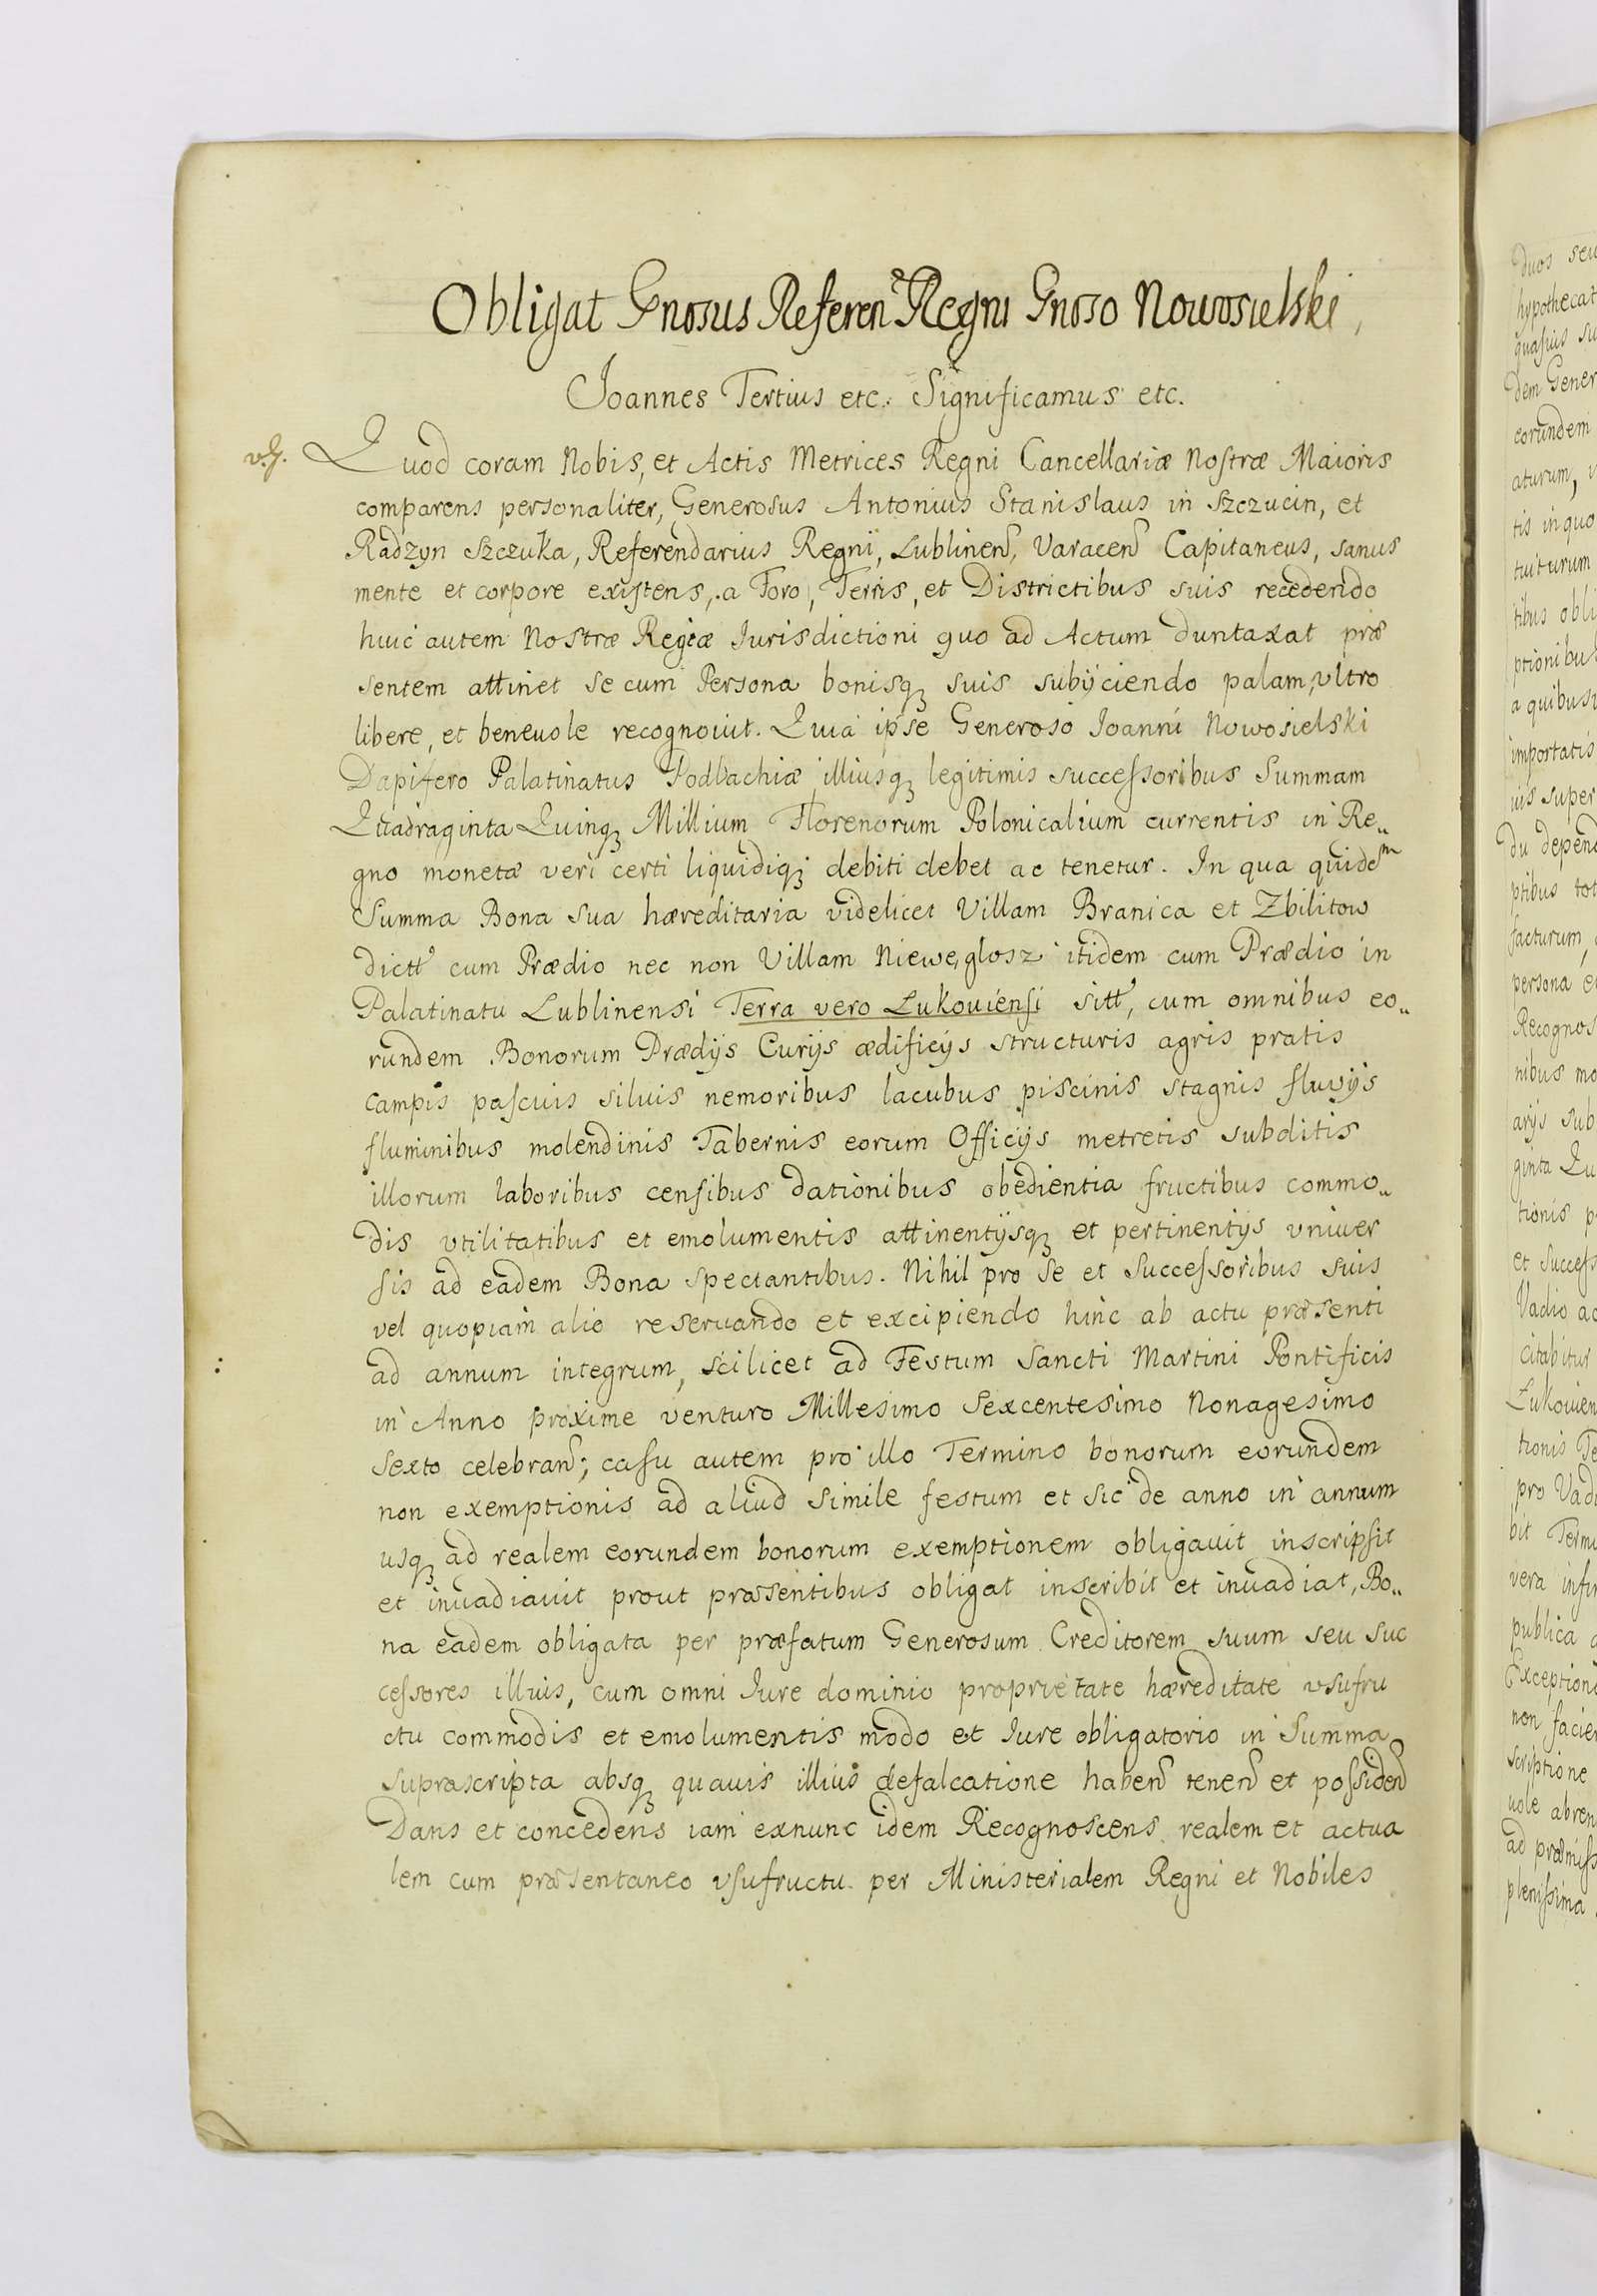 Obligat Gnosus Referen Regni Gnoso Nowosielski,
Joannes Tertius etc. Significamus etc.
Quod coram Nobis, et Actis Metrices Regni Cancellariæ Nostræ Maioris
comparens personaliter, Generosus Antonius Stanislaus in Szczucin, et
Radzyn Szczuka, Referendarius Regni, Lublinen, Varacen Capitaneus, sanus
mente et corpore existens, a Foro, Terris, et Districtibus suis recedendo
huic autem Nostræ Regiæ Iurisdictioni quo ad Actum duntaxat præ
sentem attinet se cum Persona bonisq suis subijciendo palam, vltro
libere, et beneuole recognouit. Quia ipse Generoso Joanni Nowosielski
Dapifero Palatinatus Podlachiæ illiusq legitimis successoribus Summam
Quadraginta Quinq Millium Florenorum Polonicalium currentis in Re„
gno monetæ veri certi liquidiq debiti debet ac tenetur. In qua quidem
Summa Bona sua hæreditaria videlicet Villam Branica et Zbilitow
dictt cum Prædio nec non Villam Nieweglosz itidem cum Prædio in
Palatinatu Lublinensi Terra vero Lukouiensi sitt, cum omnibus eo„
rundem Bonorum Prædijs Curijs ædificijs structuris agris pratis
campis pascuis siluis nemoribus lacubus piscinis stagnis fluvijs
fluminibus molendinis Tabernis eorum Officijs metretis subditis
illorum laboribus censibus dationibus obedientia fructibus commo„
dis vtilitatibus et emolumentis attinentijsq et pertinentijs vniuer
sis ad eadem Bona spectantibus. Nihil pro se et Successoribus suis
vel quopiam alio reseruando et excipiendo hinc ab actu præsenti
ad annum integrum, scilicet ad Festum Sancti Martini Pontificis
in Anno proxime venturo Millesimo Sexcentesimo Nonagesimo
Sexto celebran; casu autem pro illo Termino bonorum eorundem
non exemptionis ad aliud simile festum et sic de anno in annum
usq ad realem eorundem bonorum exemptionem obligauit inscripsit
et inuadiauit prout præsentibus obligat inscribit et inuadiat, Bo„
na eadem obligata per præfatum Generosum Creditorem suum seu suc
cessores illius, cum omni Iure dominio proprietate hæreditate vsufru
ctu commodis et emolumentis modo et Iure obligatorio in Summa
suprascripta absq quauis illius defalcatione haben tenen et possiden
Dans et concedens iam exnunc idem Recognoscens realem et actua
lem cum præsentaneo vsufructu per Ministerialem Regni et Nobiles
duos seu
hypothecat
quasuis su
dem Gener
eorundem
aturum,
tis in quo
tuiturum
tibus obli
ptionibus
a quibusu
importatis
uis super
du depend
ptibus tot
facturum,
persona et
Recognos
nibus mo
arijs sub
ginta Qu
tionis p
et success
Vadio ac
citabitur
Lukouien
tionis Te
pro Vadi
bit Termi
vera infir
publica
Exceptioni
non facien
scriptione
uole abren
ad præmiss
plenissima